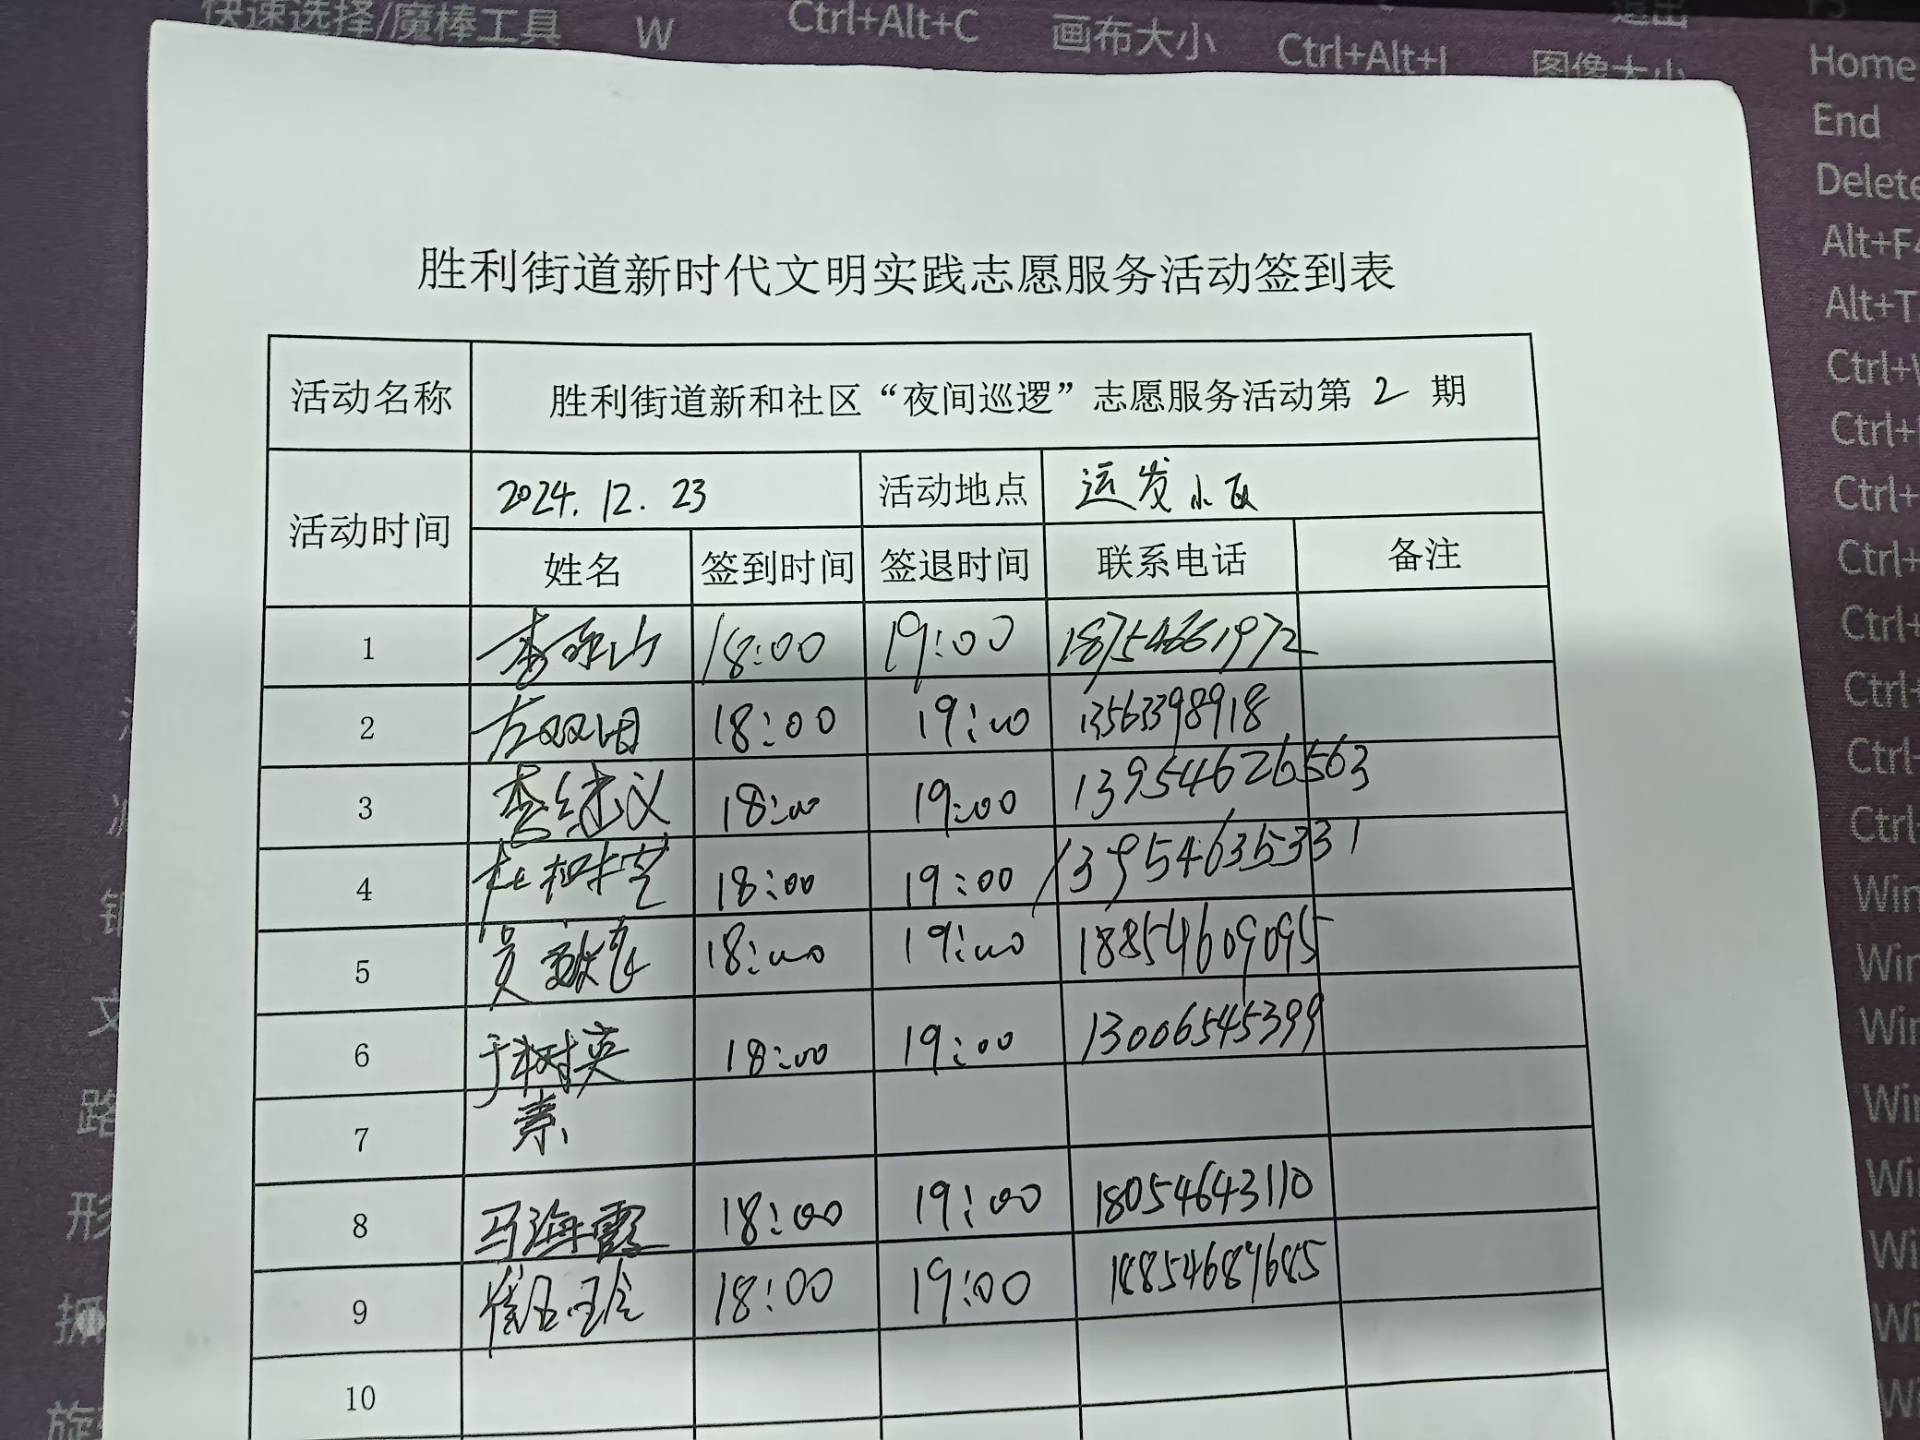 快速选择/魔棒工具 W Ctrl+Alt+C 画布大小 Ctrl+Alt+I 图像大小 退出
Home
End
Delete
Alt+F4
Alt+T
胜利街道新时代文明实践志愿服务活动签到表
活动名称 胜利街道新和社区“夜间巡逻”志愿服务活动第 2 期
活动时间 2024.12.23 活动地点 运发小区
姓名 签到时间 签退时间 联系电话 备注
1 18:00 19:00 18754661972
2 18:00 19:00 13563398918
3 李继义 18:00 19:00 13954626563
4 杜树芝 18:00 19:00 13954635331
5 18:00 19:00 18854609095
6 于树英 18:00 19:00 13006545399
7
8 马海霞 18:00 19:00 18054643110
9 18:00 19:00
10